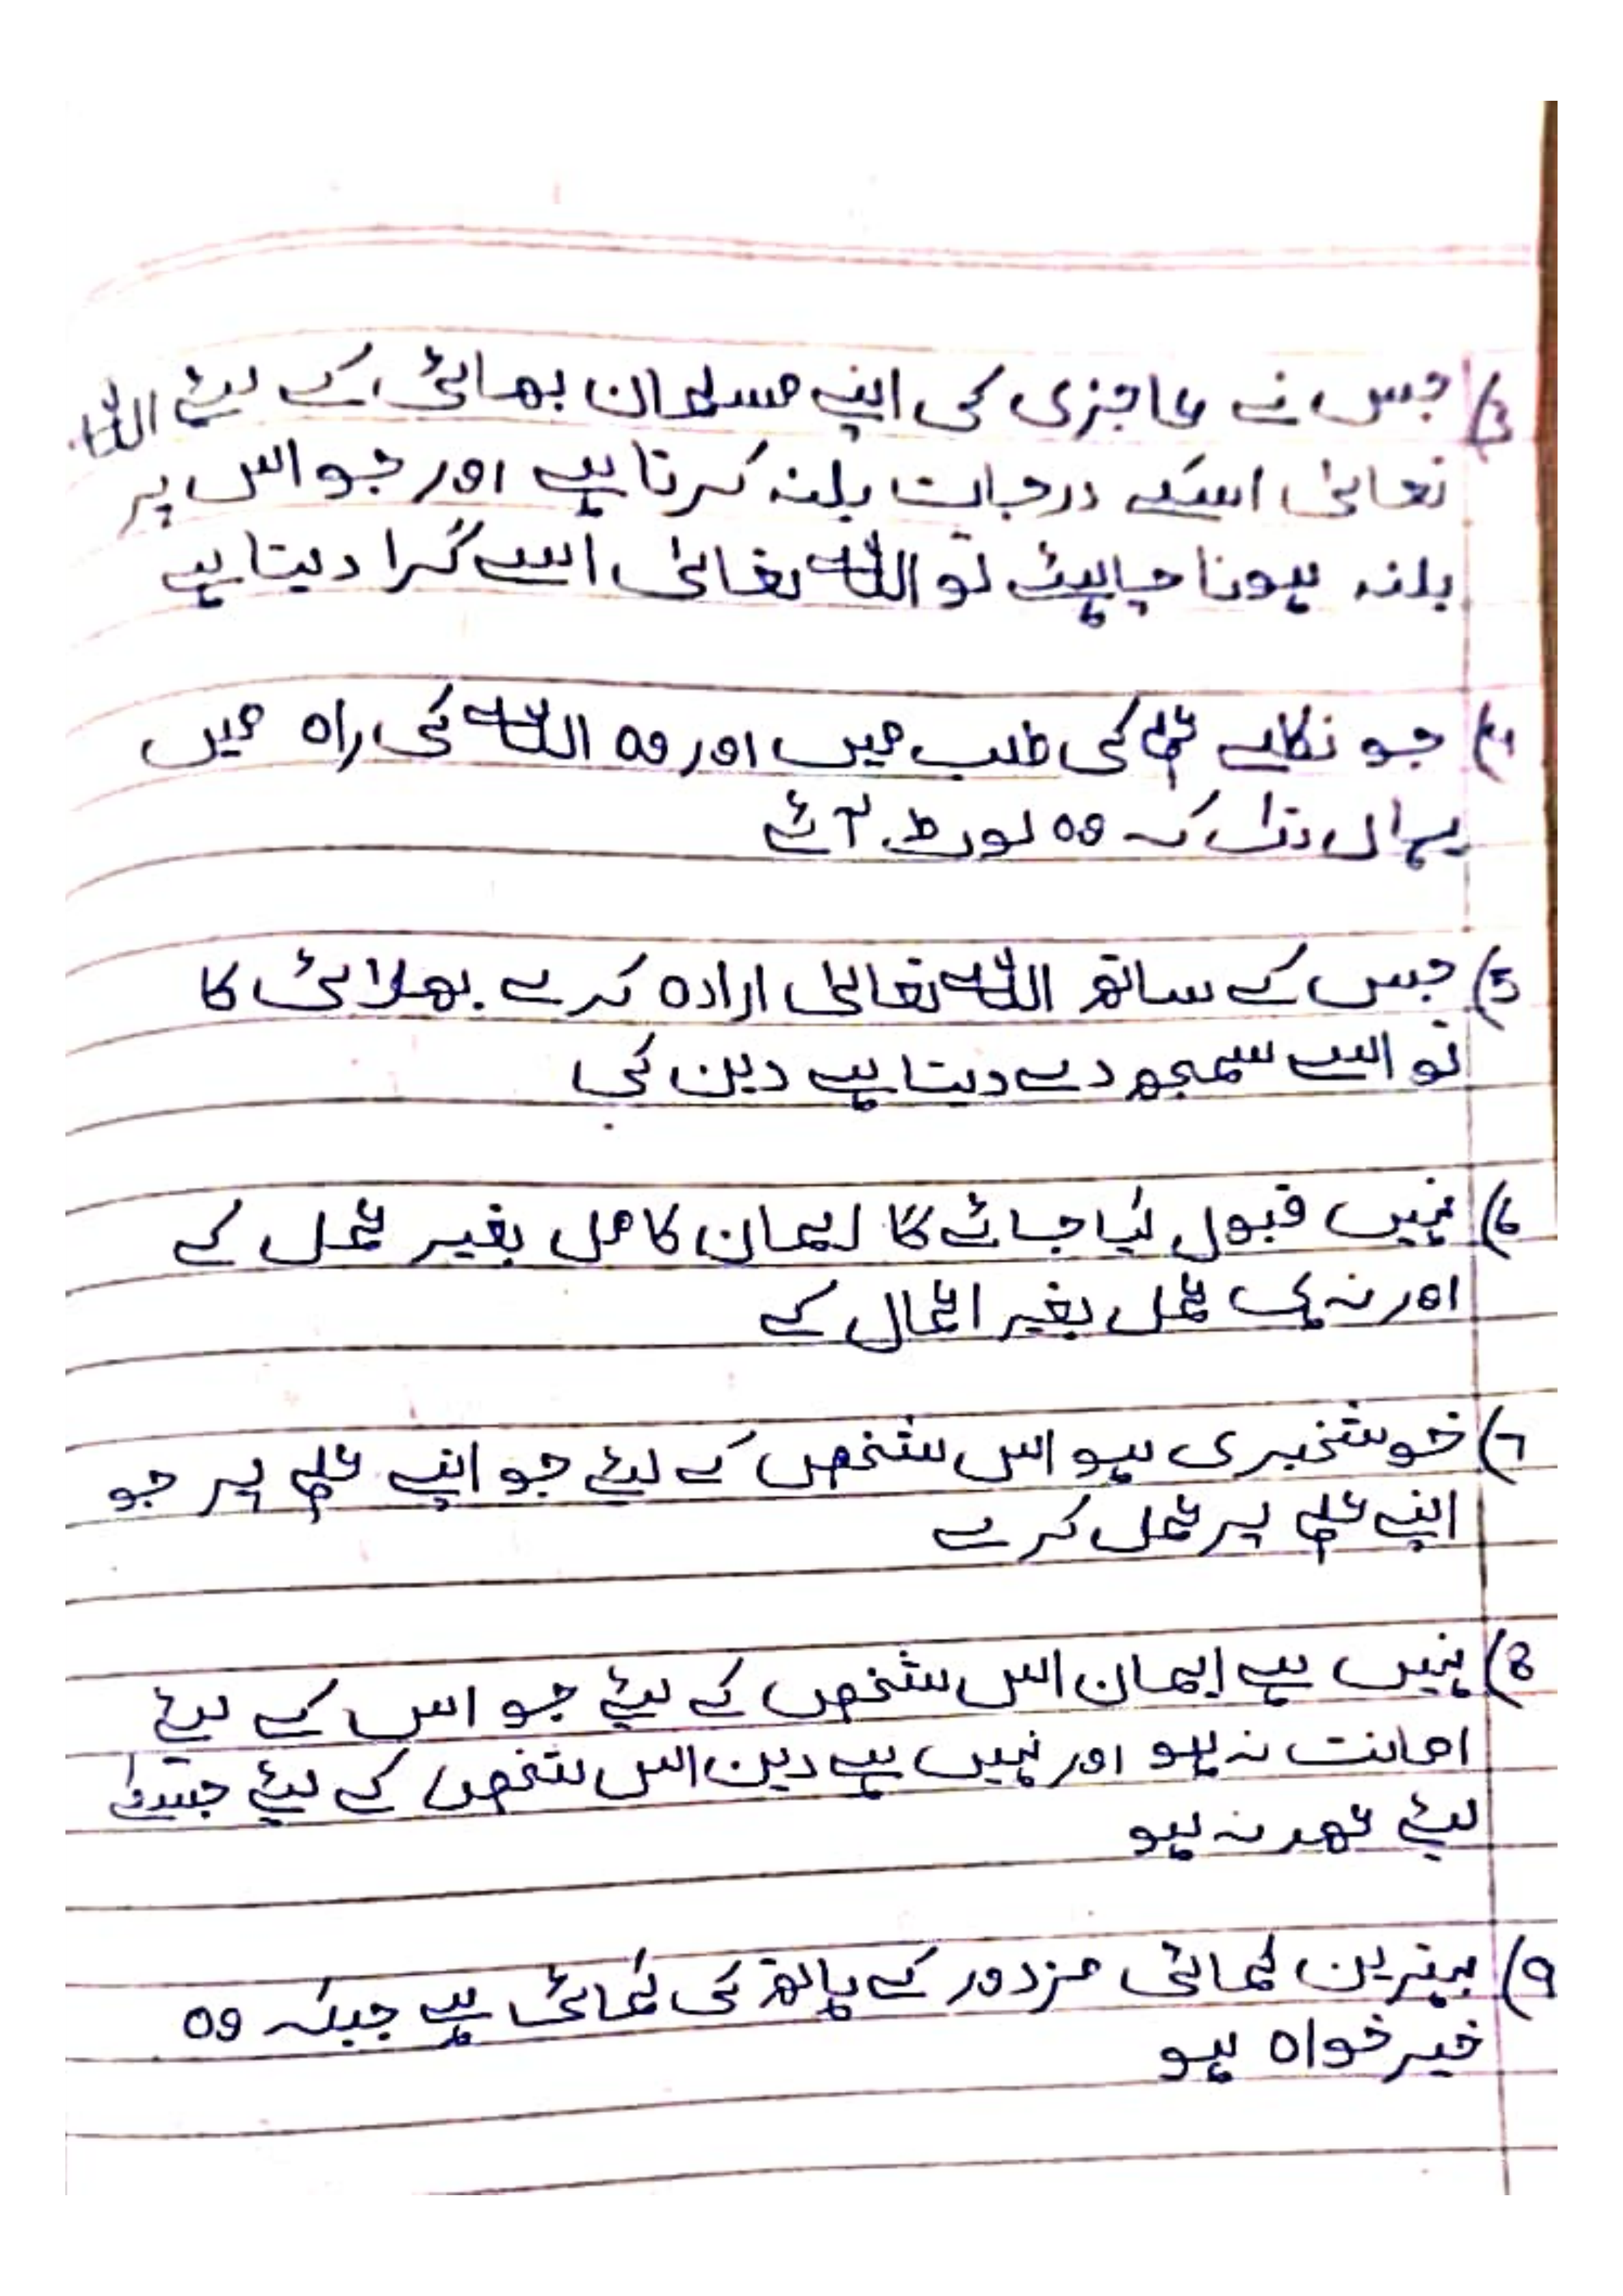 3) جس نے عاجزی کی اپنے مسلمان بھائی کے لئے اللہ
تعالیٰ اسکے درجات بلند کرتا ہے اور جو اس پر
بلند ہونا چاہیئے تو اللہ تعالیٰ اسے گرا دیتا ہے
4) جو نکلے علم کی طلب میں اور وہ اللہ کی راہ میں
یہاں تک کہ وہ لوٹ آئے
5) جس کے ساتھ اللہ تعالیٰ ارادہ کرے بھلائی کا
تو اسے سمجھ دے دیتا ہے دین کی
6) نہیں قبول کیا جائے گا ایمان کامل بغیر عمل کے
اور نہ ہی عمل بغیر اعمال کے
7) خوشخبری ہو اس شخص کے لیئے جو اپنے علم پر جو
اپنے علم پر عمل کرے
8) نہیں ہے ایمان اس شخص کے لیئے جو اس کے لیئے
امانت نہ ہو اور نہیں ہے دین اس شخص کے لیئے جسکے
لیئے عھد نہ ہو
9) بہترین کمائی مزدور کے ہاتھ کی کمائی ہے جبکہ وہ
خیر خواہ ہو